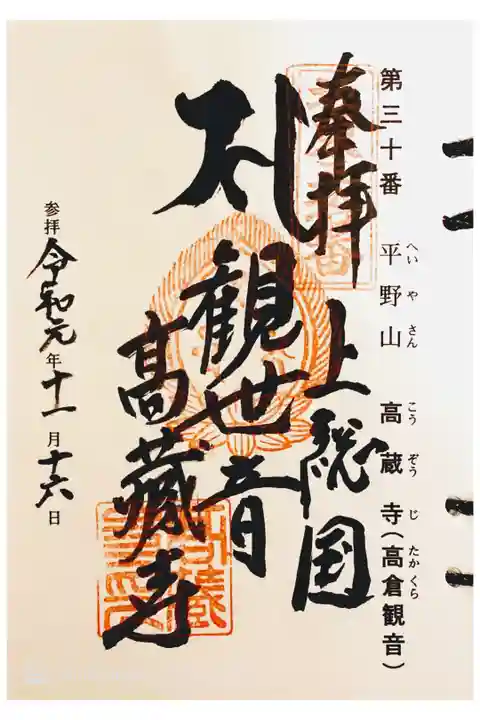 第三十番 平野山 高蔵寺(高倉観音)
へいやさん こうぞうじ たかくら
奉拝
上総国
観世音
高蔵寺
参拝 令和元年十一月十六日